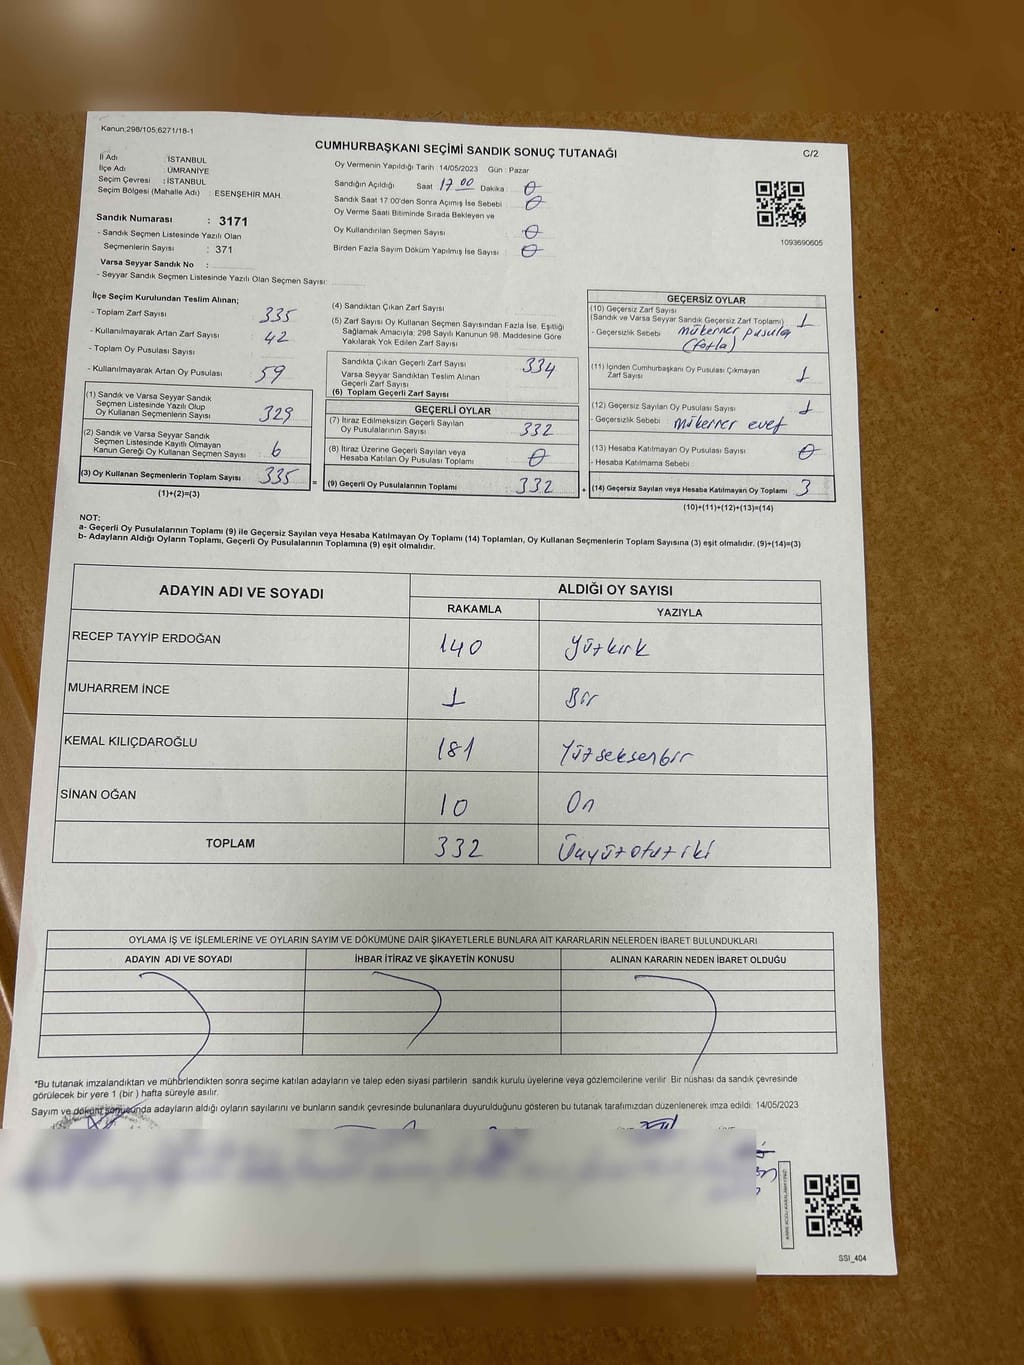 Kanun,298/105,6271/18-1
CUMHURBAŞKANI SEÇİMİ SANDIK SONUÇ TUTANAĞI
C/2
İl Adı : İSTANBUL
İlçe Adı : ÜMRANİYE
Seçim Çevresi : İSTANBUL
Seçim Bölgesi (Mahalle Adı) : ESENŞEHİR MAH.
Sandık Numarası : 3171
- Sandık Seçmen Listesinde Yazılı Olan
Seçmenlerin Sayısı : 371
Varsa Seyyar Sandık No :
- Seyyar Sandık Seçmen Listesinde Yazılı Olan Seçmen Sayısı:
Oy Vermenin Yapıldığı Tarih : 14/05/2023 Gün : Pazar
Sandığın Açıldığı Saat 17 00 Dakika 0
Sandık Saat 17:00'den Sonra Açımış İse Sebebi : 0
Oy Verme Saati Bitiminde Sırada Bekleyen ve
Oy Kullandırılan Seçmen Sayısı : 0
Birden Fazla Sayım Döküm Yapılmış İse Sayısı : 0
1093690605
İlçe Seçim Kurulundan Teslim Alınan;
- Toplam Zarf Sayısı 335
- Kullanılmayarak Artan Zarf Sayısı 42
- Toplam Oy Pusulası Sayısı
- Kullanılmayarak Artan Oy Pusulası 59
(1) Sandık ve Varsa Seyyar Sandık
Seçmen Listesinde Yazılı Olup
Oy Kullanan Seçmenlerin Sayısı 329
(2) Sandık ve Varsa Seyyar Sandık
Seçmen Listesinde Kayıtlı Olmayan
Kanun Gereği Oy Kullanan Seçmen Sayısı 6
(3) Oy Kullanan Seçmenlerin Toplam Sayısı 335 =
(1)+(2)=(3)
(4) Sandıktan Çıkan Zarf Sayısı
(5) Zarf Sayısı Oy Kullanan Seçmen Sayısından Fazla İse, Eşitliği
Sağlamak Amacıyla, 298 Sayılı Kanunun 98. Maddesine Göre
Yakılarak Yok Edilen Zarf Sayısı
Sandıkta Çıkan Geçerli Zarf Sayısı 334
Varsa Seyyar Sandıktan Teslim Alınan
Geçerli Zarf Sayısı
(6) Toplam Geçerli Zarf Sayısı
GEÇERLİ OYLAR
(7) İtiraz Edilmeksizin Geçerli Sayılan
Oy Pusulalarının Sayısı 332
(8) İtiraz Üzerine Geçerli Sayılan veya
Hesaba Katılan Oy Pusulası Toplamı 0
(9) Geçerli Oy Pusulalarının Toplamı 332 +
GEÇERSİZ OYLAR
(10) Geçersiz Zarf Sayısı
(Sandık ve Varsa Seyyar Sandık Geçersiz Zarf Toplamı) 1
- Geçersizlik Sebebi : mükerrer pusula
(fazla)
(11) İçinden Cumhurbaşkanı Oy Pusulası Çıkmayan
Zarf Sayısı 1
(12) Geçersiz Sayılan Oy Pusulası Sayısı 1
- Geçersizlik Sebebi : mükerrer evet
(13) Hesaba Katılmayan Oy Pusulası Sayısı 0
- Hesaba Katılmama Sebebi
(14) Geçersiz Sayılan veya Hesaba Katılmayan Oy Toplamı 3
(10)+(11)+(12)+(13)=(14)
NOT:
a- Geçerli Oy Pusulalarının Toplamı (9) ile Geçersiz Sayılan veya Hesaba Katılmayan Oy Toplamı (14) Toplamları, Oy Kullanan Seçmenlerin Toplam Sayısına (3) eşit olmalıdır. (9)+(14)=(3)
b- Adayların Aldığı Oyların Toplamı, Geçerli Oy Pusulalarının Toplamına (9) eşit olmalıdır.
ADAYIN ADI VE SOYADI
ALDIĞI OY SAYISI
RAKAMLA YAZIYLA
RECEP TAYYİP ERDOĞAN 140 Yüzkırk
MUHARREM İNCE 1 Bir
KEMAL KILIÇDAROĞLU 181 Yüzseksenbir
SİNAN OĞAN 10 On
TOPLAM 332 Üçyüzotuziki
OYLAMA İŞ VE İŞLEMLERİNE VE OYLARIN SAYIM VE DÖKÜMÜNE DAİR ŞİKAYETLERLE BUNLARA AİT KARARLARIN NELERDEN İBARET BULUNDUKLARI
ADAYIN ADI VE SOYADI İHBAR İTİRAZ VE ŞİKAYETİN KONUSU ALINAN KARARIN NEDEN İBARET OLDUĞU
*Bu tutanak imzalandıktan ve mühürlendikten sonra seçime katılan adayların ve talep eden siyasi partilerin sandık kurulu üyelerine veya gözlemcilerine verilir. Bir nüshası da sandık çevresinde
görülecek bir yere 1 (bir ) hafta süreyle asılır.
Sayım ve döküm sonucunda adayların aldığı oyların sayılarını ve bunların sandık çevresinde bulunanlara duyurulduğunu gösteren bu tutanak tarafımızdan düzenlenerek imza edildi. 14/05/2023
SSI_404